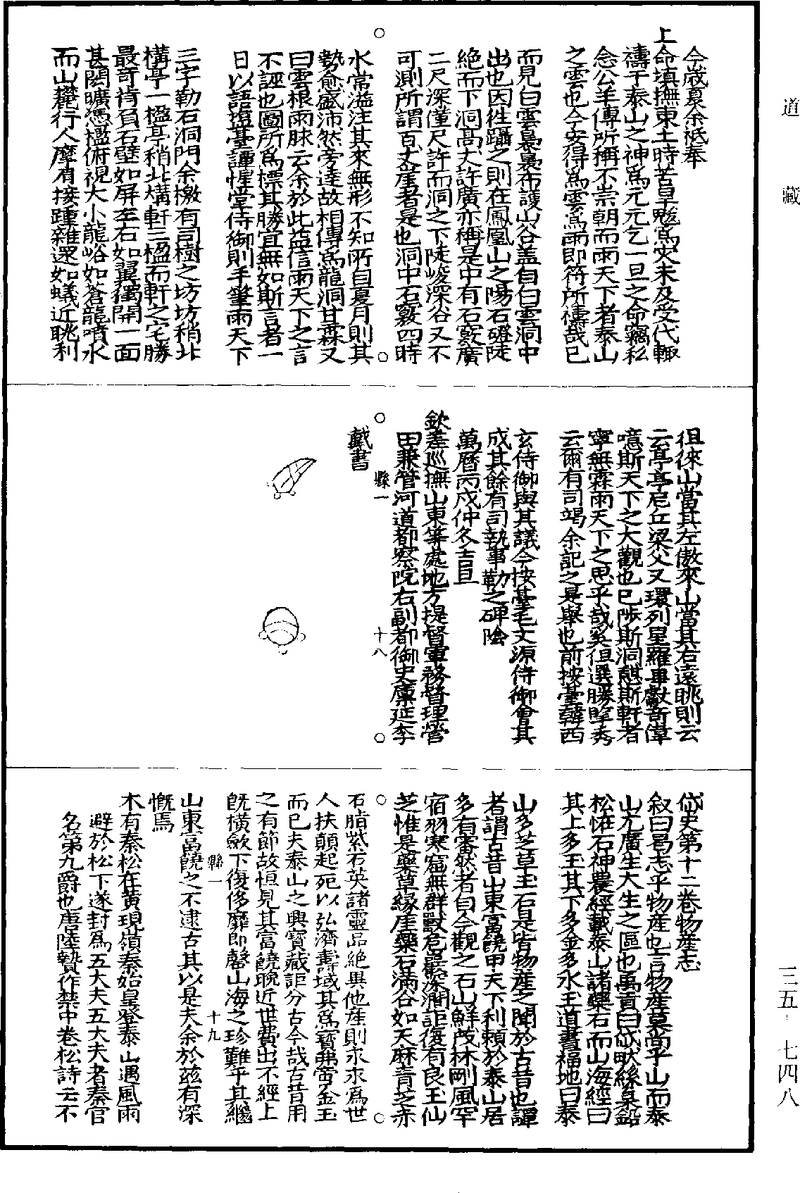 道藏
今歲夏余祗奉
上命填撫東土時苦旱魃爲災未及受代輙
禱于泰山之神爲元元乞一旦之命竊私
念公羊傳所稱不崇朝而雨天下者泰山
之雲也今安得爲雲爲雨即符所禱哉已
而見白雲裊裊布護山谷盖自白雲洞中
出也因徃躡之則在鳳凰山之陽石磴陡
絶而下洞高丈許廣亦稱是中有石竅廣
二尺深僅尺許而洞之下陡峻深谷又不
可測所謂百丈崖者是也洞中石竅四時
水常溢注其來無形不知所自夏月則其
勢愈盛沛然旁達故相傳爲龍洞甘霖又
曰雲根雨脉云余於此益信雨天下之言
不誣也圖所爲標其勝宜無如斯言者一
日以語塩臺譚惺堂侍御則手筆雨天下
三字勒石洞門余檄有司樹之坊坊稍北
構亭一楹亭稍北構軒三楹而軒之宅勝
最奇背負石壁如屏左右如翼獨開一面
甚閎曠憑楹俯視大小龍峪如蒼龍噴水
而山麓行人摩肩接踵雜遝如蟻近眺利
徂徠山當其左傲來山當其右遠眺則云
云亭亭尼丘梁父又環列星羅車獻奇偉
噫斯天下之大觀也已陟斯洞憇斯軒者
寧無霖雨天下之思乎哉奚但選勝攬秀
云爾有司竭余記之是舉也前按臺韓西
玄侍御與其議今按臺毛文源侍御會其
成其餘有司執事勒之碑隂
萬曆丙戌仲冬吉旦
欽差巡撫山東等處地方提督軍務督理營
田兼管河道都察院右副都御史廪延李
戴書
縣一
十八
岱史第十二卷物産志
叙曰曷志乎物産也言物産莫尚乎山而泰
山尤廣生大生之區也禹貢曰岱畎絲枲鉛
松怪石神農經載泰山諸藥石而山海經曰
其上多玉其下多金多水玉道書福地曰泰
山多芝草玉石是皆物産之聞於古昔也譚
者謂古昔山東富饒甲天下利賴於泰山居
多有審然者自今觀之石山鮮茂林剛風罕
宿羽寒窟無群獸危巖深澗詎復有良玉仙
芝惟是藥草緣崖藥石滿谷如天麻青芝赤
石脂紫石英諸靈品絶異他産則求求爲世
人扶顛起死以弘濟壽域其爲寳弗啻金玉
而已夫泰山之興寳藏詎分古今哉古昔用
之有節故恒見其富饒晚近世費出不經上
旣橫斂下復侈靡即罄山海之珍難乎其繼
山東富饒之不逮古其以是夫余於兹有深
慨焉
木有秦松在黄現嶺秦始皇登泰山遇風雨
避於松下遂封爲五大夫五大夫者秦官
名第九爵也唐陸贄作禁中卷松詩云不
縣一
十九
三五－七四八